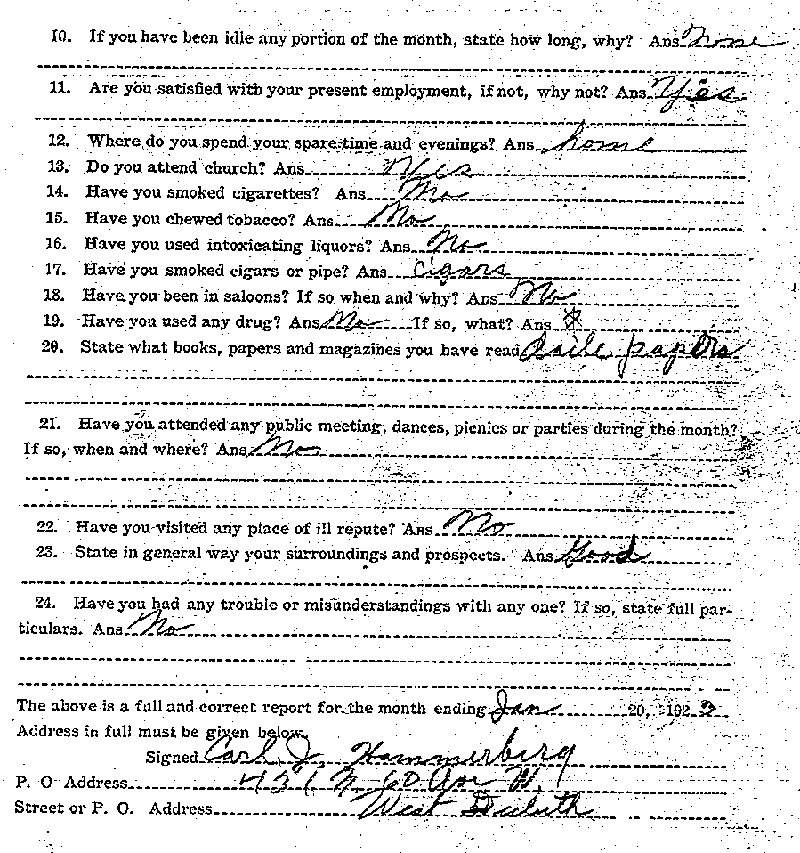 10. If you have been idle any portion of the month, state how long, why? Ans none
11. Are you satisfied with your present employment, if not, why not? Ans Yes
12. Where do you spend your spare time and evenings? Ans home
13. Do you attend church? Ans Yes
14. Have you smoked cigarettes? Ans No
15. Have you chewed tobacco? Ans No
16. Have you used intoxicating liquors? Ans No
17. Have you smoked cigars or pipe? Ans Cigars
18. Have you been in saloons? If so when and why? Ans No
19. Have you used any drug? Ans No If so, what? Ans
20. State what books, papers and magazines you have read daile papers
21. Have you attended any public meeting, dances, picnics or parties during the month?
If so, when and where? Ans No
22. Have you visited any place of ill repute? Ans No
23. State in general way your surroundings and prospects. Ans Good
24. Have you had any trouble or misunderstandings with any one? If so, state full par-
ticulars. Ans No
The above is a full and correct report for the month ending Jan 20, 192
Address in full must be given below.
Signed Carl J. Hammerberg
P. O Address N 60 Ave W.
Street or P. O. Address West Duluth